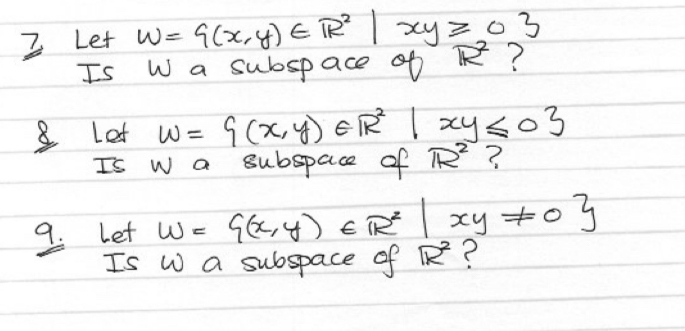 7 Let W = {(x,y) ∈ ℝ² | xy ≥ 0}
Is W a subspace of ℝ² ?
8 Let W = {(x,y) ∈ ℝ² | xy ≤ 0}
Is W a subspace of ℝ² ?
9. Let W = {(x,y) ∈ ℝ² | xy ≠ 0}
Is W a subspace of ℝ² ?